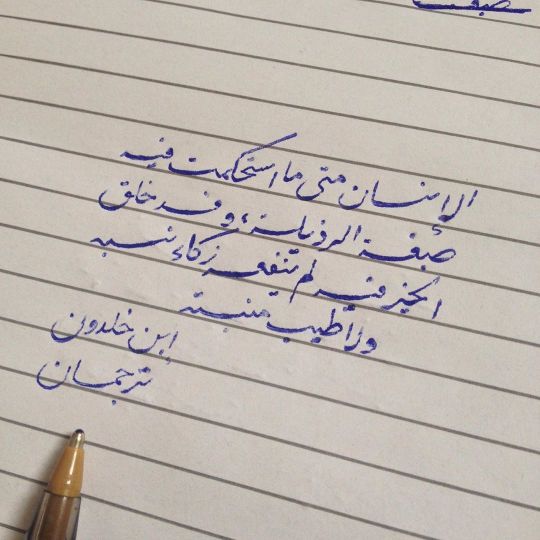 صبغة
الإنسان متى ما استحكمت فيه
صبغة الرذيلة، وفسد خلق
الخير فيه لم ينفعه زكاء نسبه
ولا طيب منبته
ابن خلدون
ترجمان